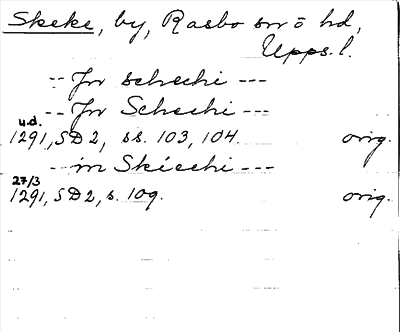 Skeke, by, Rasbo sn o hd,
Upps. l.
-- Jn schechi ---
-- Jn Schechi ---
u.d.
1291, SD2, ss. 103, 104. orig.
-- in Skiechi ---
27/3
1291, SD2, s. 109. orig.